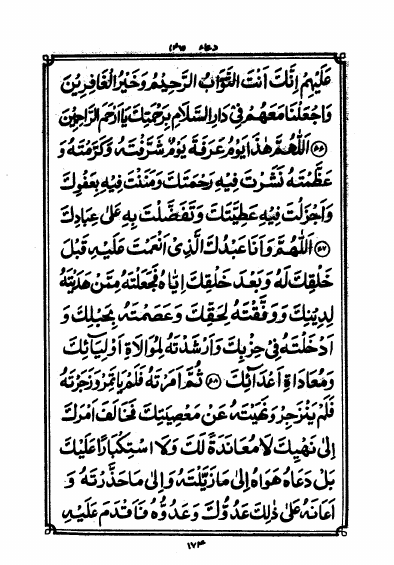 دعاء ۴۷
عَلَيْهِمْ اِنَّكَ اَنْتَ التَّوَّابُ الرَّحِيْمُ وَخَيْرُ الْغَافِرِيْنَ
وَاجْعَلْنَا مَعَهُمْ فِيْ دَارِ السَّلَامِ بِرَحْمَتِكَ يَا اَرْحَمَ الرَّاحِمِيْنَ
اَللّٰهُمَّ هٰذَا يَوْمُ عَرَفَةَ يَوْمٌ شَرَّفْتَهُ وَكَرَّمْتَهُ وَ
عَظَّمْتَهُ نَشَرْتَ فِيْهِ رَحْمَتَكَ وَمَنَنْتَ فِيْهِ بِعَفْوِكَ
وَاَجْزَلْتَ فِيْهِ عَطِيَّتَكَ وَتَفَضَّلْتَ بِهِ عَلٰى عِبَادِكَ
اَللّٰهُمَّ وَاَنَا عَبْدُكَ الَّذِيْ اَنْعَمْتَ عَلَيْهِ قَبْلَ
خَلْقِكَ لَهُ وَبَعْدَ خَلْقِكَ اِيَّاهُ فَجَعَلْتَهُ مِمَّنْ هَدَيْتَهُ
لِدِيْنِكَ وَوَفَّقْتَهُ لِحَقِّكَ وَعَصَمْتَهُ بِحَبْلِكَ وَ
اَدْخَلْتَهُ فِيْ حِزْبِكَ وَاَرْشَدْتَهُ لِمُوَالَاةِ اَوْلِيَآئِكَ
وَمُعَادَاةِ اَعْدَآئِكَ ثُمَّ اَمَرْتَهُ فَلَمْ يَاْتَمِرْ وَزَجَرْتَهُ
فَلَمْ يَنْزَجِرْ وَنَهَيْتَهُ عَنْ مَعْصِيَتِكَ فَخَالَفَ اَمْرَكَ
اِلٰى نَهْيِكَ لَا مُعَانَدَةً لَكَ وَلَا اسْتِكْبَارًا عَلَيْكَ
بَلْ دَعَاهُ هَوَاهُ اِلٰى مَا زَيَّلْتَهُ وَاِلٰى مَا حَذَّرْتَهُ وَ
اَعَانَهُ عَلٰى ذٰلِكَ عَدُوُّكَ وَعَدُوُّهُ فَاَقْدَمَ عَلَيْهِ
۱۷۴